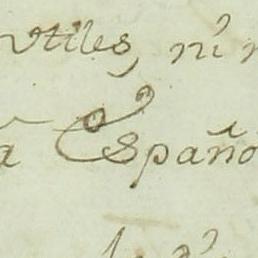 utiles, ni
a Españo